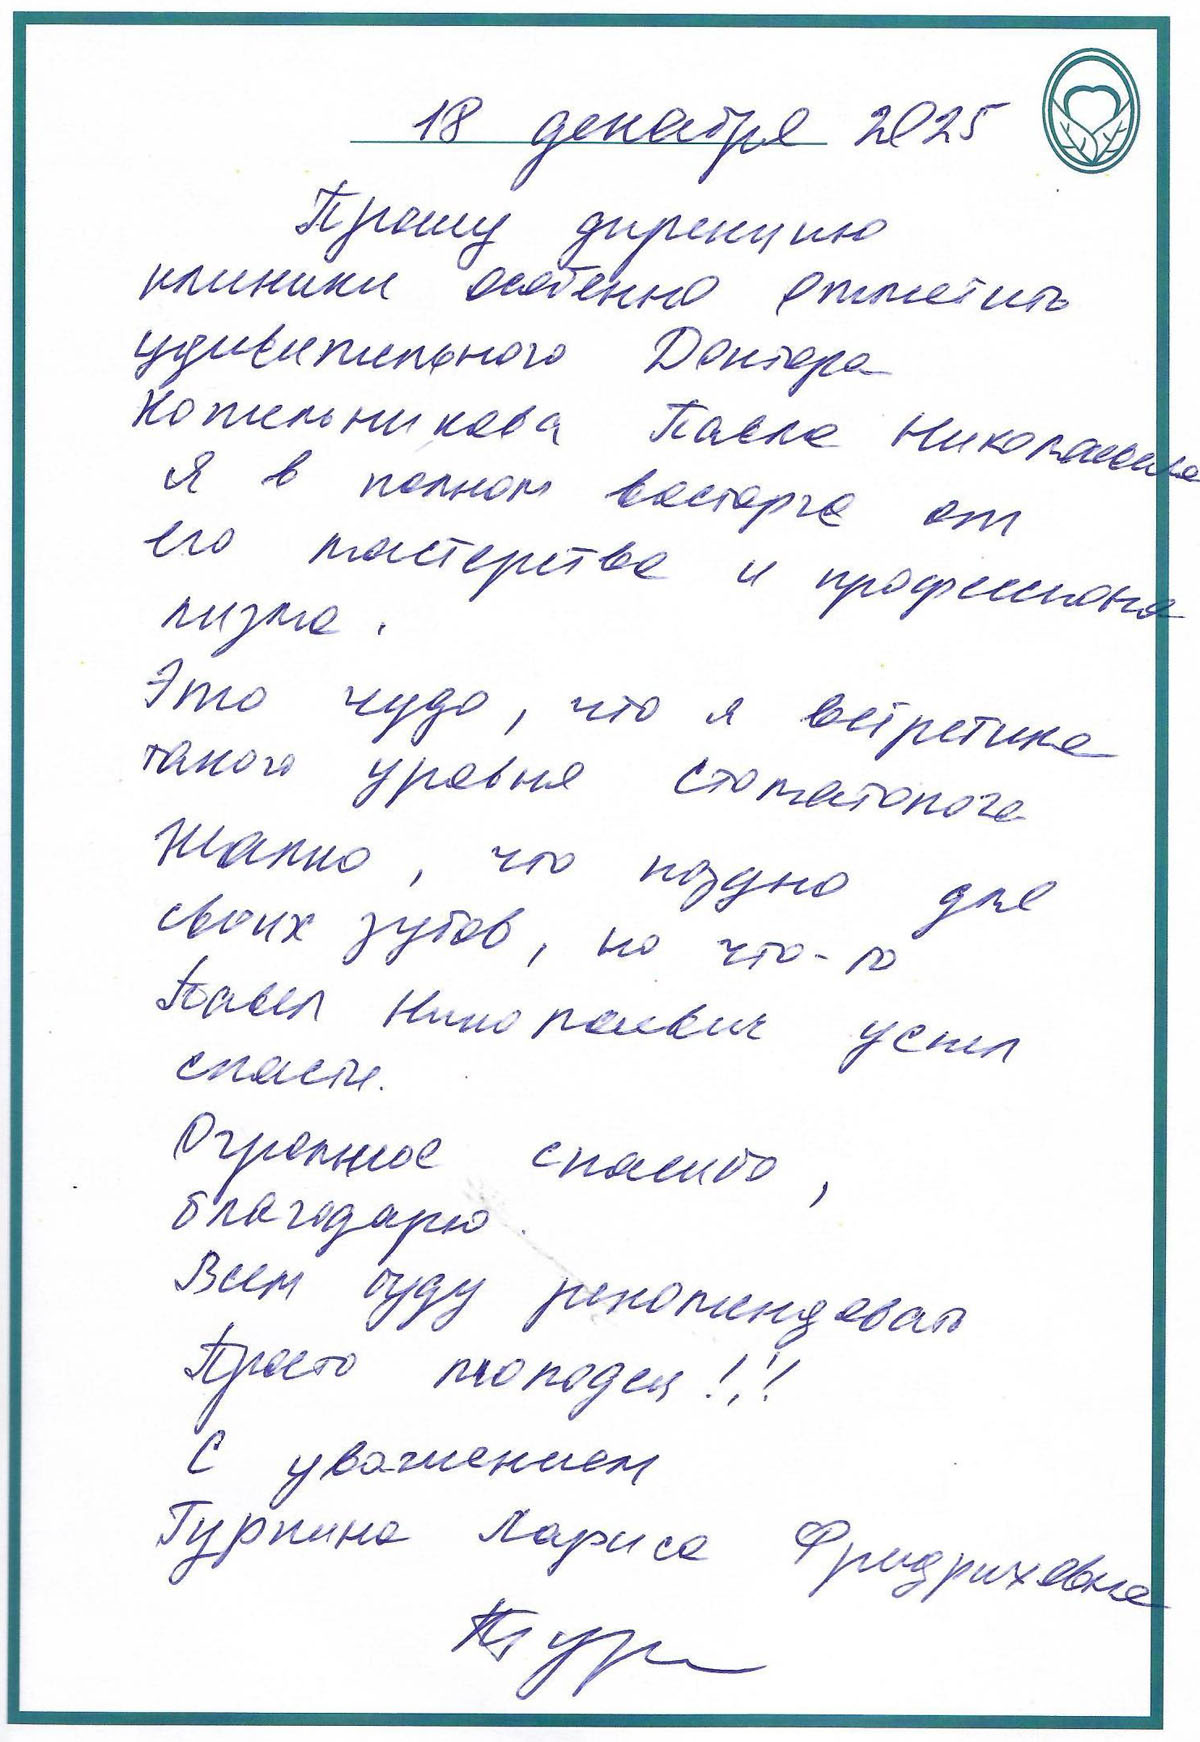 18 декабря 2025
Прошу дирекцию
клиники особенно отметить
удивительного Доктора
Котельникова Павла Николаевича
Я в полном восторге от
его мастерства и профессиона
лизма.
Это чудо, что я встретила
такого уровня стоматолога
Жалко, что поздно для
своих зубов, но что-то
Павел Николаевич успел
спасти.
Огромное спасибо,
благодарю.
Всем буду рекомендовать
Просто молодец!!!
С уважением
Лариса Фридриховна